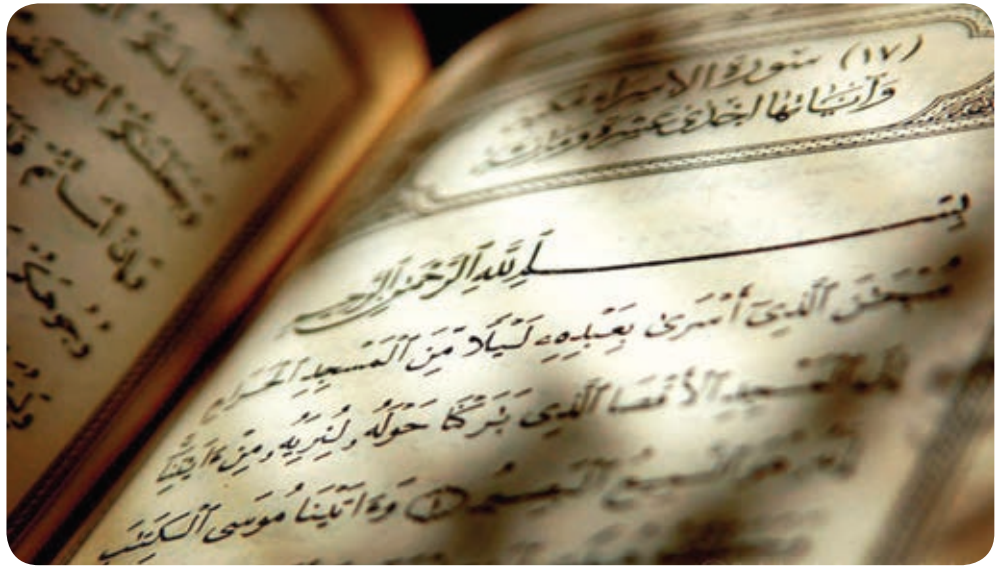 (١٧) سورة الإسراء مكية
وآياتها إحدى عشرة ومائة
بسم الله الرحمن الرحيم
سُبْحَٰنَ ٱلَّذِىٓ أَسْرَىٰ بِعَبْدِهِۦ لَيْلًا مِّنَ ٱلْمَسْجِدِ ٱلْحَرَامِ
إِلَى ٱلْمَسْجِدِ ٱلْأَقْصَا ٱلَّذِى بَٰرَكْنَا حَوْلَهُۥ لِنُرِيَهُۥ مِنْ ءَايَٰتِنَآ
إِنَّهُۥ هُوَ ٱلسَّمِيعُ ٱلْبَصِيرُ ١ وَءَاتَيْنَا مُوسَى ٱلْكِتَٰبَ
فإذا
وجوهكم